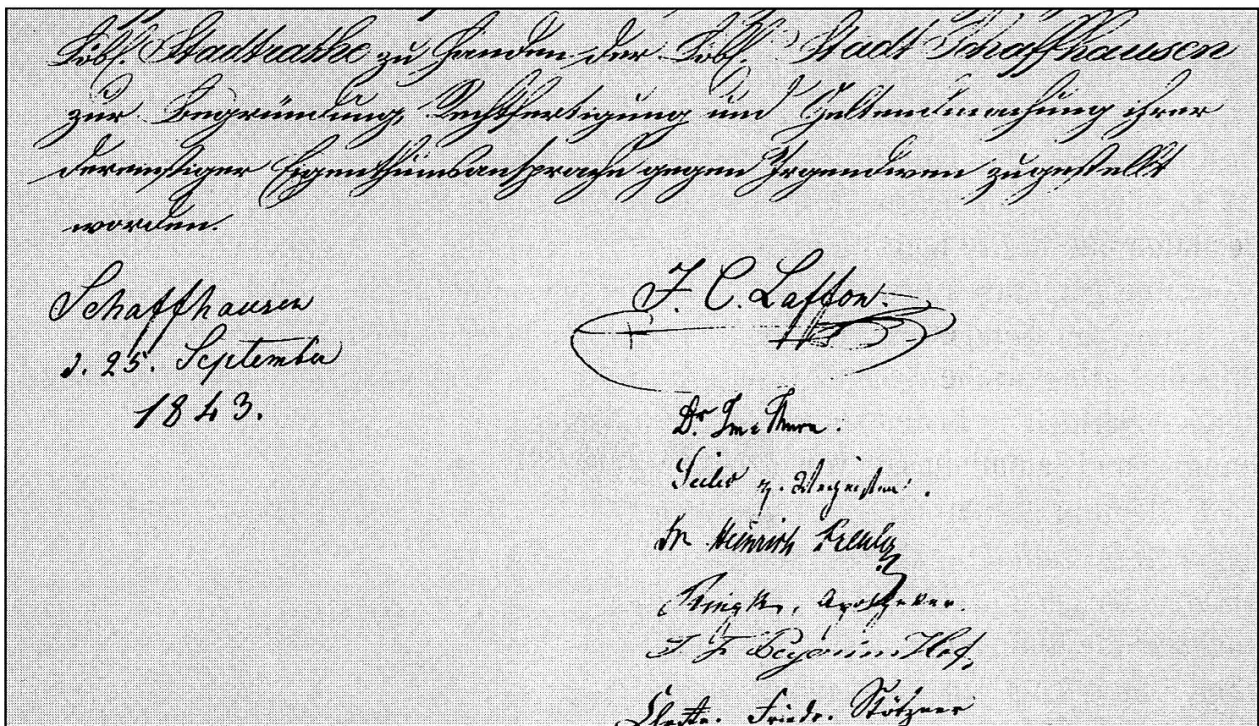 Löbl. Stadtrathe zu Handen der Löbl. Stadt Schaffhausen
zur Begründung, Rechtfertigung und Geltendmachung ihrer
dereinstiger Eigenthumsansprache gegen Irgendwen zugestellt
worden.
Schaffhausen
d. 25. September
1843.
J. C. Laffon.
Dr. Im Thurn.
Seiler z.
Dr Heinrich
Ringk, Apotheker.
J. F. Peyer im Hof,
Friedr. Stötzner